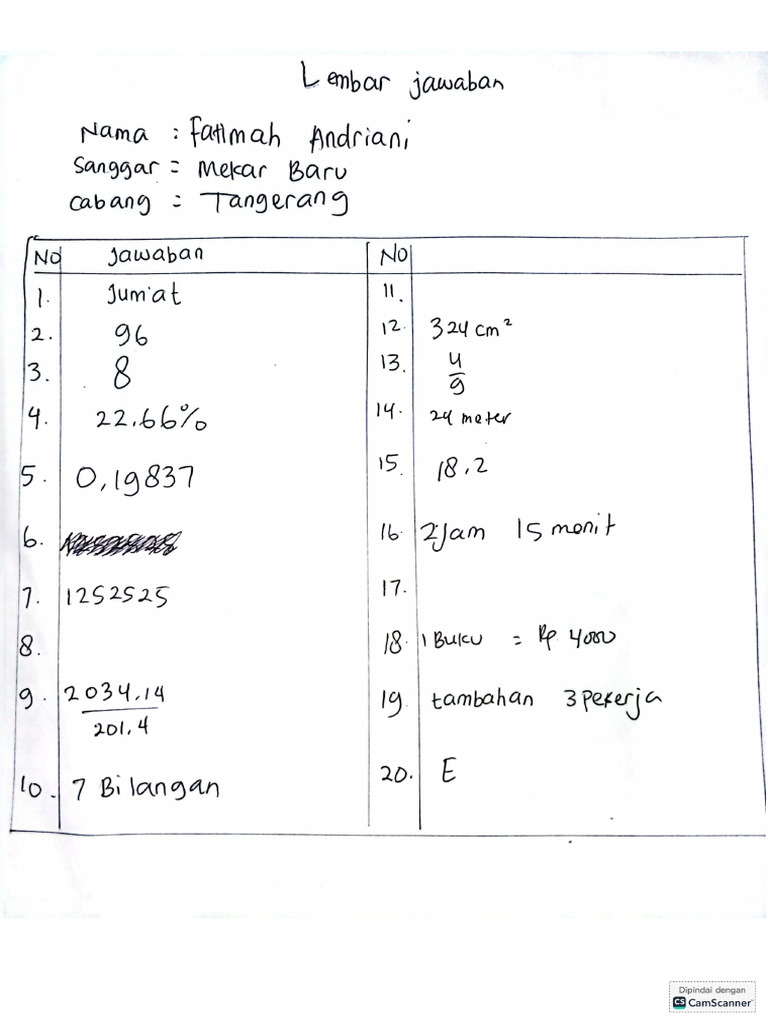 Lembar jawaban
Nama : Fatimah Andriani
Sanggar : Mekar Baru
Cabang : Tangerang
NO Jawaban
1. Jum'at
2. 96
3. 8
4. 22.66%
5. 0,19837
6.
7. 1252525
8.
9. 2034.14
201.4
10. 7 Bilangan
NO
11.
12. 324 cm²
13. 4
9
14. 24 meter
15. 18,2
16. 2 Jam 15 menit
17.
18. 1 Buku = Rp 4000
19. tambahan 3 pekerja
20. E
Dipindai dengan
CS CamScanner